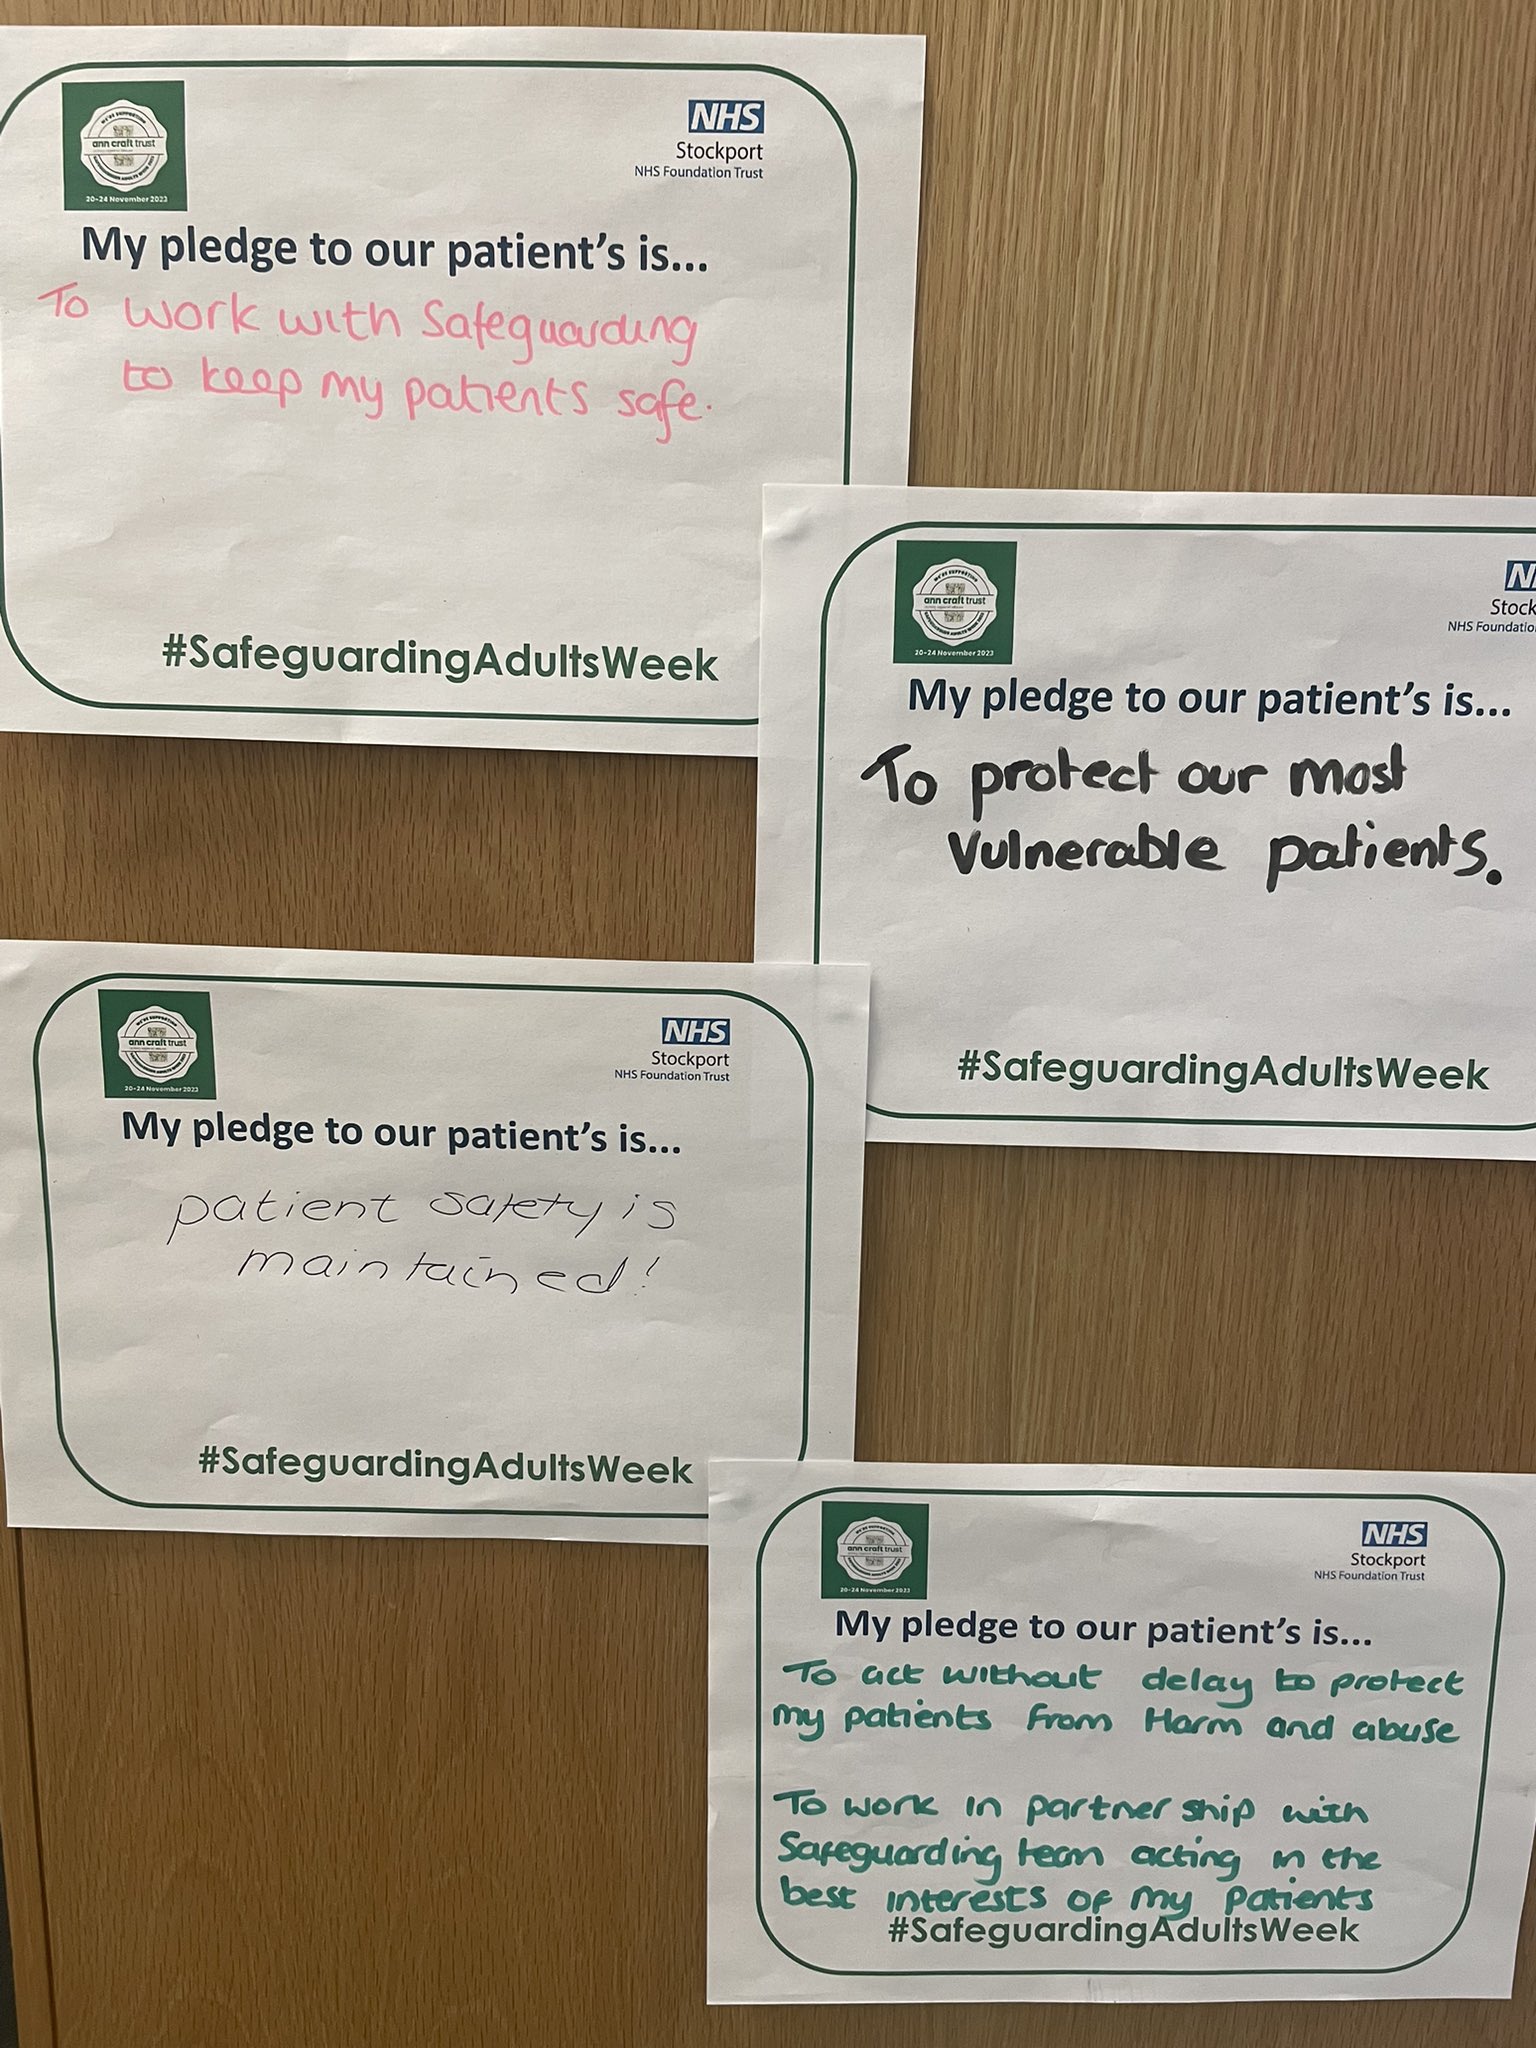 WE'RE SUPPORTING
ann craft trust
SAFEGUARDING ADULTS WEEK 2023
20-24 November 2023
NHS
Stockport
NHS Foundation Trust
My pledge to our patient's is...
To work with Safeguarding
to keep my patients safe.
#SafeguardingAdultsWeek
WE'RE SUPPORTING
ann craft trust
SAFEGUARDING ADULTS WEEK 2023
20-24 November 2023
My pledge to our patient's is...
To protect our most
vulnerable patients.
#SafeguardingAdultsWeek
WE'RE SUPPORTING
ann craft trust
SAFEGUARDING ADULTS WEEK 2023
20-24 November 2023
NHS
Stockport
NHS Foundation Trust
My pledge to our patient's is...
patient safety is
maintained!
#SafeguardingAdultsWeek
WE'RE SUPPORTING
ann craft trust
SAFEGUARDING ADULTS WEEK 2023
20-24 November 2023
NHS
Stockport
NHS Foundation Trust
My pledge to our patient's is...
To act without delay to protect
my patients from Harm and abuse
To work in partnership with
Safeguarding team acting in the
best interests of my patients
#SafeguardingAdultsWeek